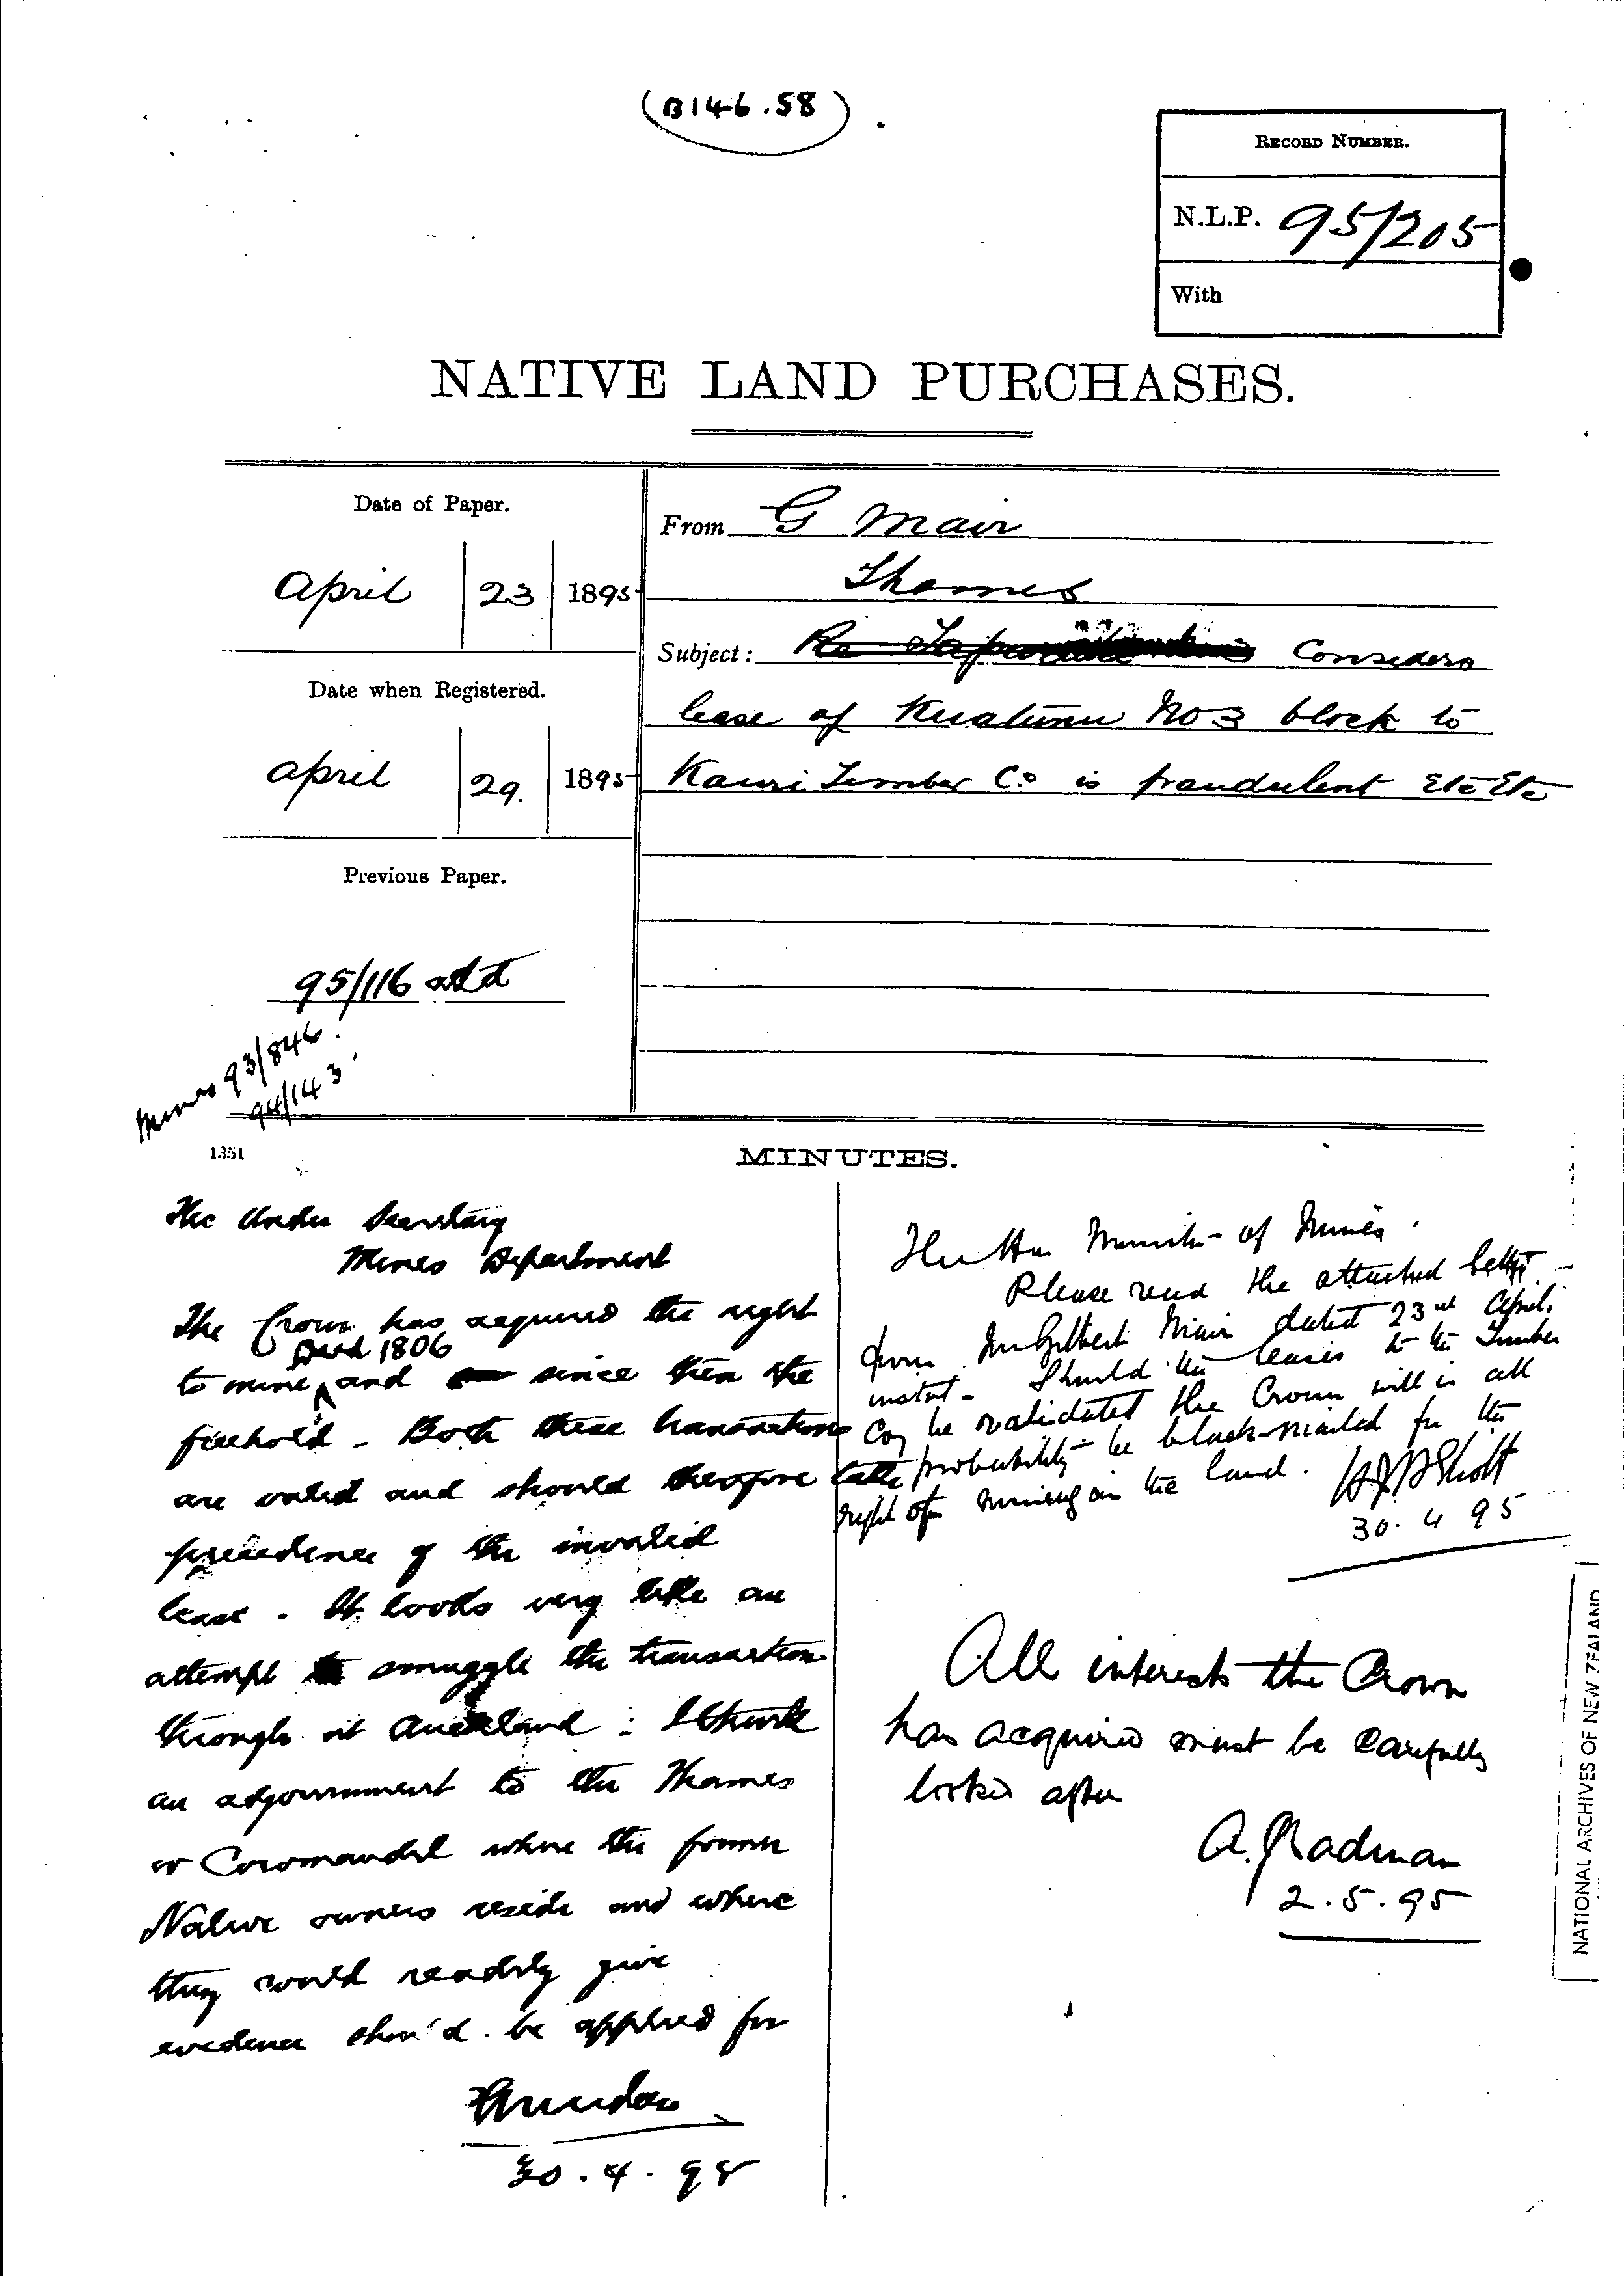 (B146.58)
RECORD NUMBER.
N.L.P. 95/205
With
NATIVE LAND PURCHASES.
Date of Paper.
April 23 1895
Date when Registered.
April 29. 1895
Previous Paper.
95/116 attd
Mines 93/846.
94/143.
From G Mair
Thames
Subject: Re Considers
lease of Kuatunu No 3 block to
Kauri Timber Co. is fraudulent Etc Etc
1351
MINUTES.
The Under Secretary
Mines Department
The Crown has acquired the right
Deed 1806
to mine and since then the
freehold - Both these transactions
are valid and should therefore take
precedence of the invalid
lease. It looks very like an
attempt to smuggle the transaction
through at Auckland: I think
an adjournment to the Thames
or Coromandel where the former
Native owners reside and where
they would readily give
evidence shou'd be applied for
30.4.95
The Hon Minister of Mines.
Please read the attached letter
from Mr Gilbert Mair dated 23rd April
instant - Should the leases to the Timber
Coy be validated the Crown will in all
probability be black-mailed for the
right of mining on the land.
30.4 95
All interests the Crown
has acquired must be carefully
looked after
A. Cadman
2.5.95
NATIONAL ARCHIVES OF NEW ZEALAND